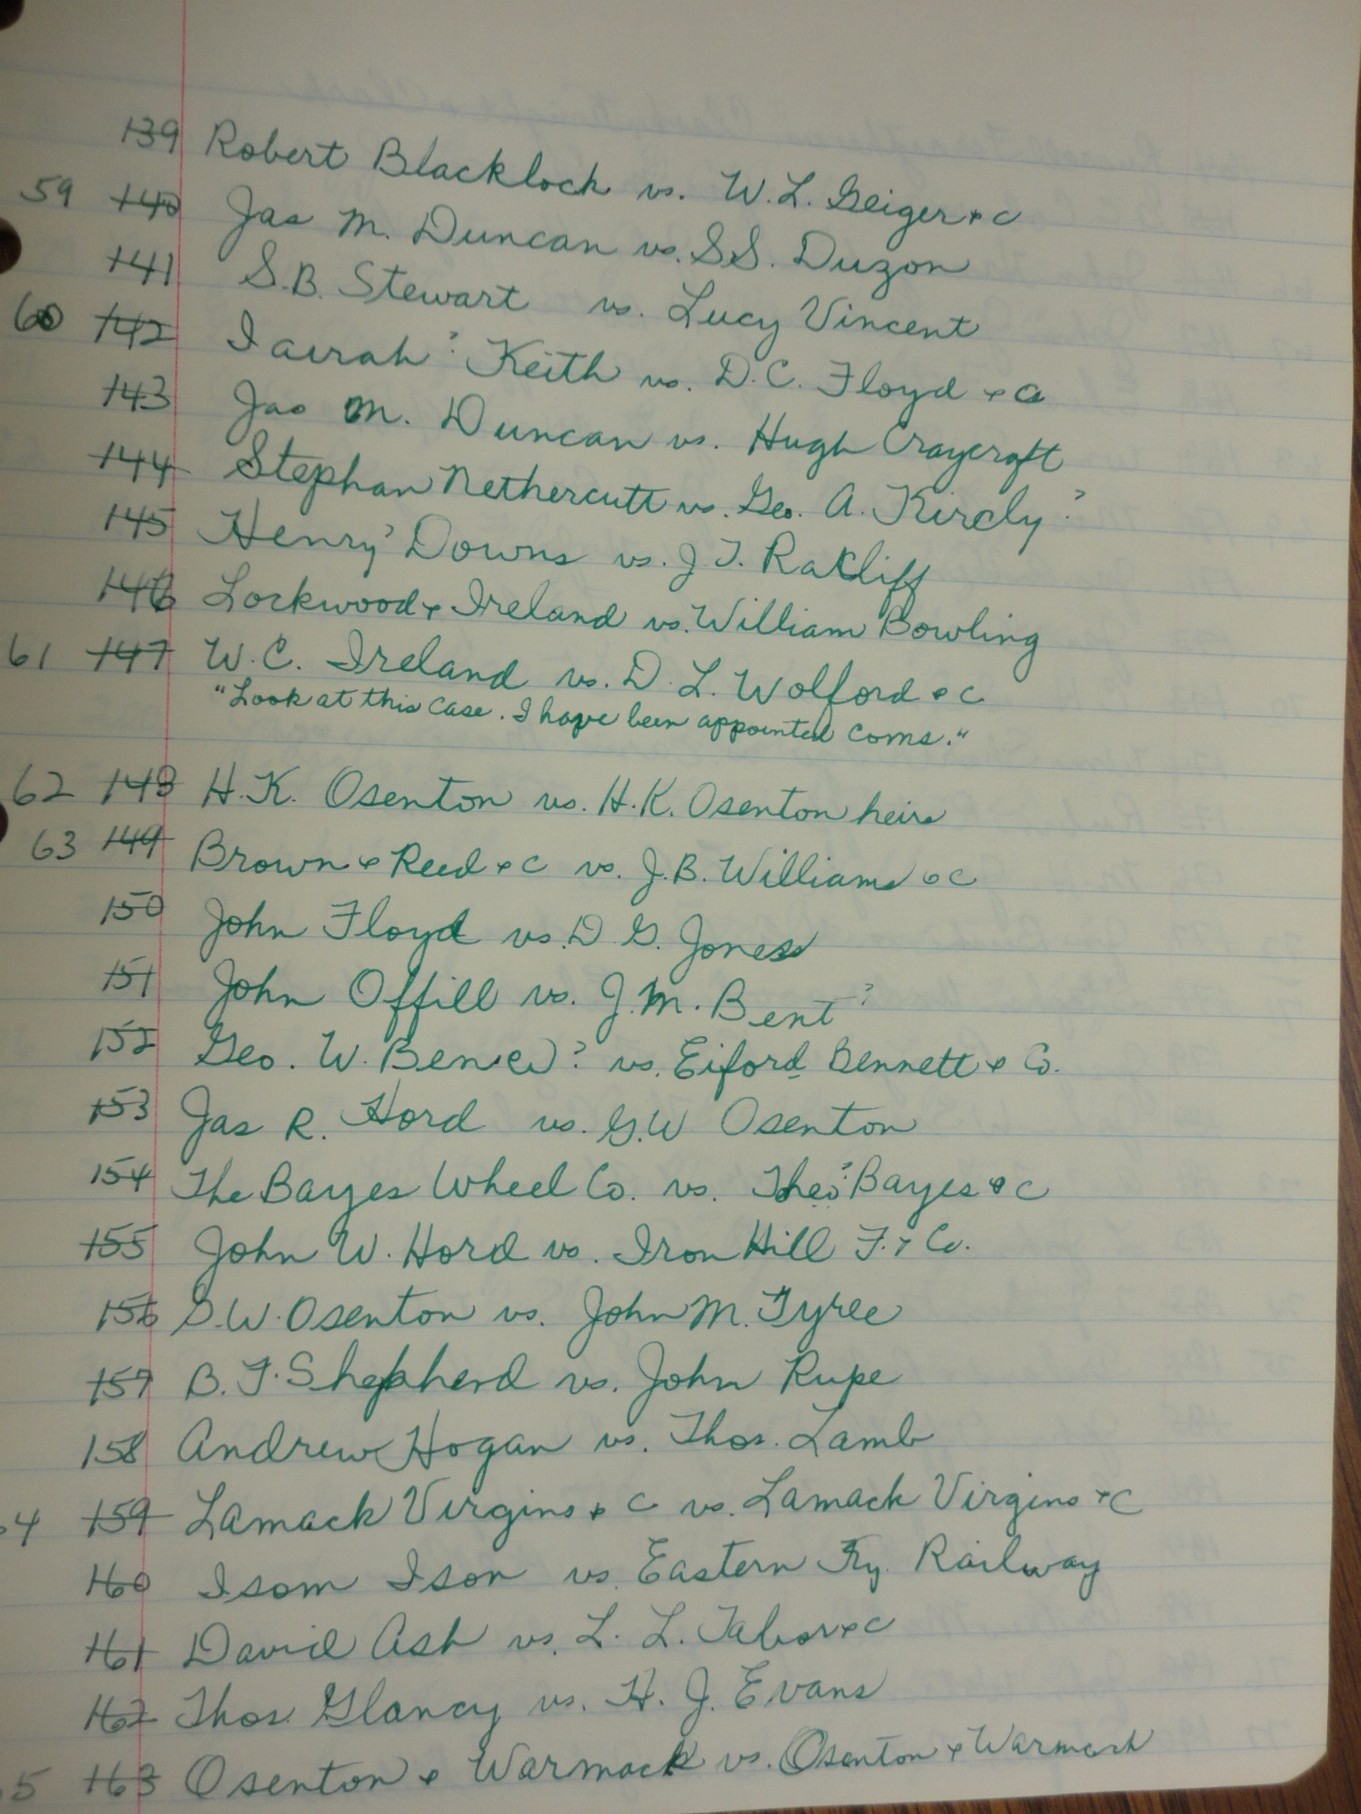 139 Robert Blacklock vs. W. L. Geiger & c
59 140 Jas M. Duncan vs. S S. Duzon
141 S.B. Stewart vs. Lucy Vincent
60 142 Iairah? Keith vs. D.C. Floyd & c
143 Jas M. Duncan vs. Hugh Craycraft
144 Stephan Nethercutt vs. Geo. A. Kirdy?
145 Henry? Downs vs. J T. Ratcliff
146 Lockwood & Ireland vs. William Bowling
61 147 W.C. Ireland vs. D. L. Wolford & c
"Look at this case. I have been appointed Coms."
62 148 H.K. Osenton vs. H.K. Osenton heirs
63 149 Brown & Reed & c vs. J.B. Williams & c
150 John Floyd vs. D G. Jones
151 John Offill vs. J.M. Bent?
152 Geo. W. ? vs. Eiford Bennett & Co.
153 Jas R. Hord vs. G.W Osenton
154 The Bayes Wheel Co. vs. Theo? Bayes & c
155 John W. Hord vs. Iron Hill F. & Co.
156 G.W. Osenton vs. John M. Tyree
157 B. F. Shepherd vs. John Rupe
158 Andrew Hogan vs. Thos. Lamb
4 159 Lamack Virgins & c vs. Lamack Virgins & C
160 Isom Ison vs. Eastern Ky. Railway
161 David Ash vs. L. L. Tabor & c
162 Thos. Glancy vs. H. J. Evans
5 163 Osenton & Warmack vs. Osenton & Warmack